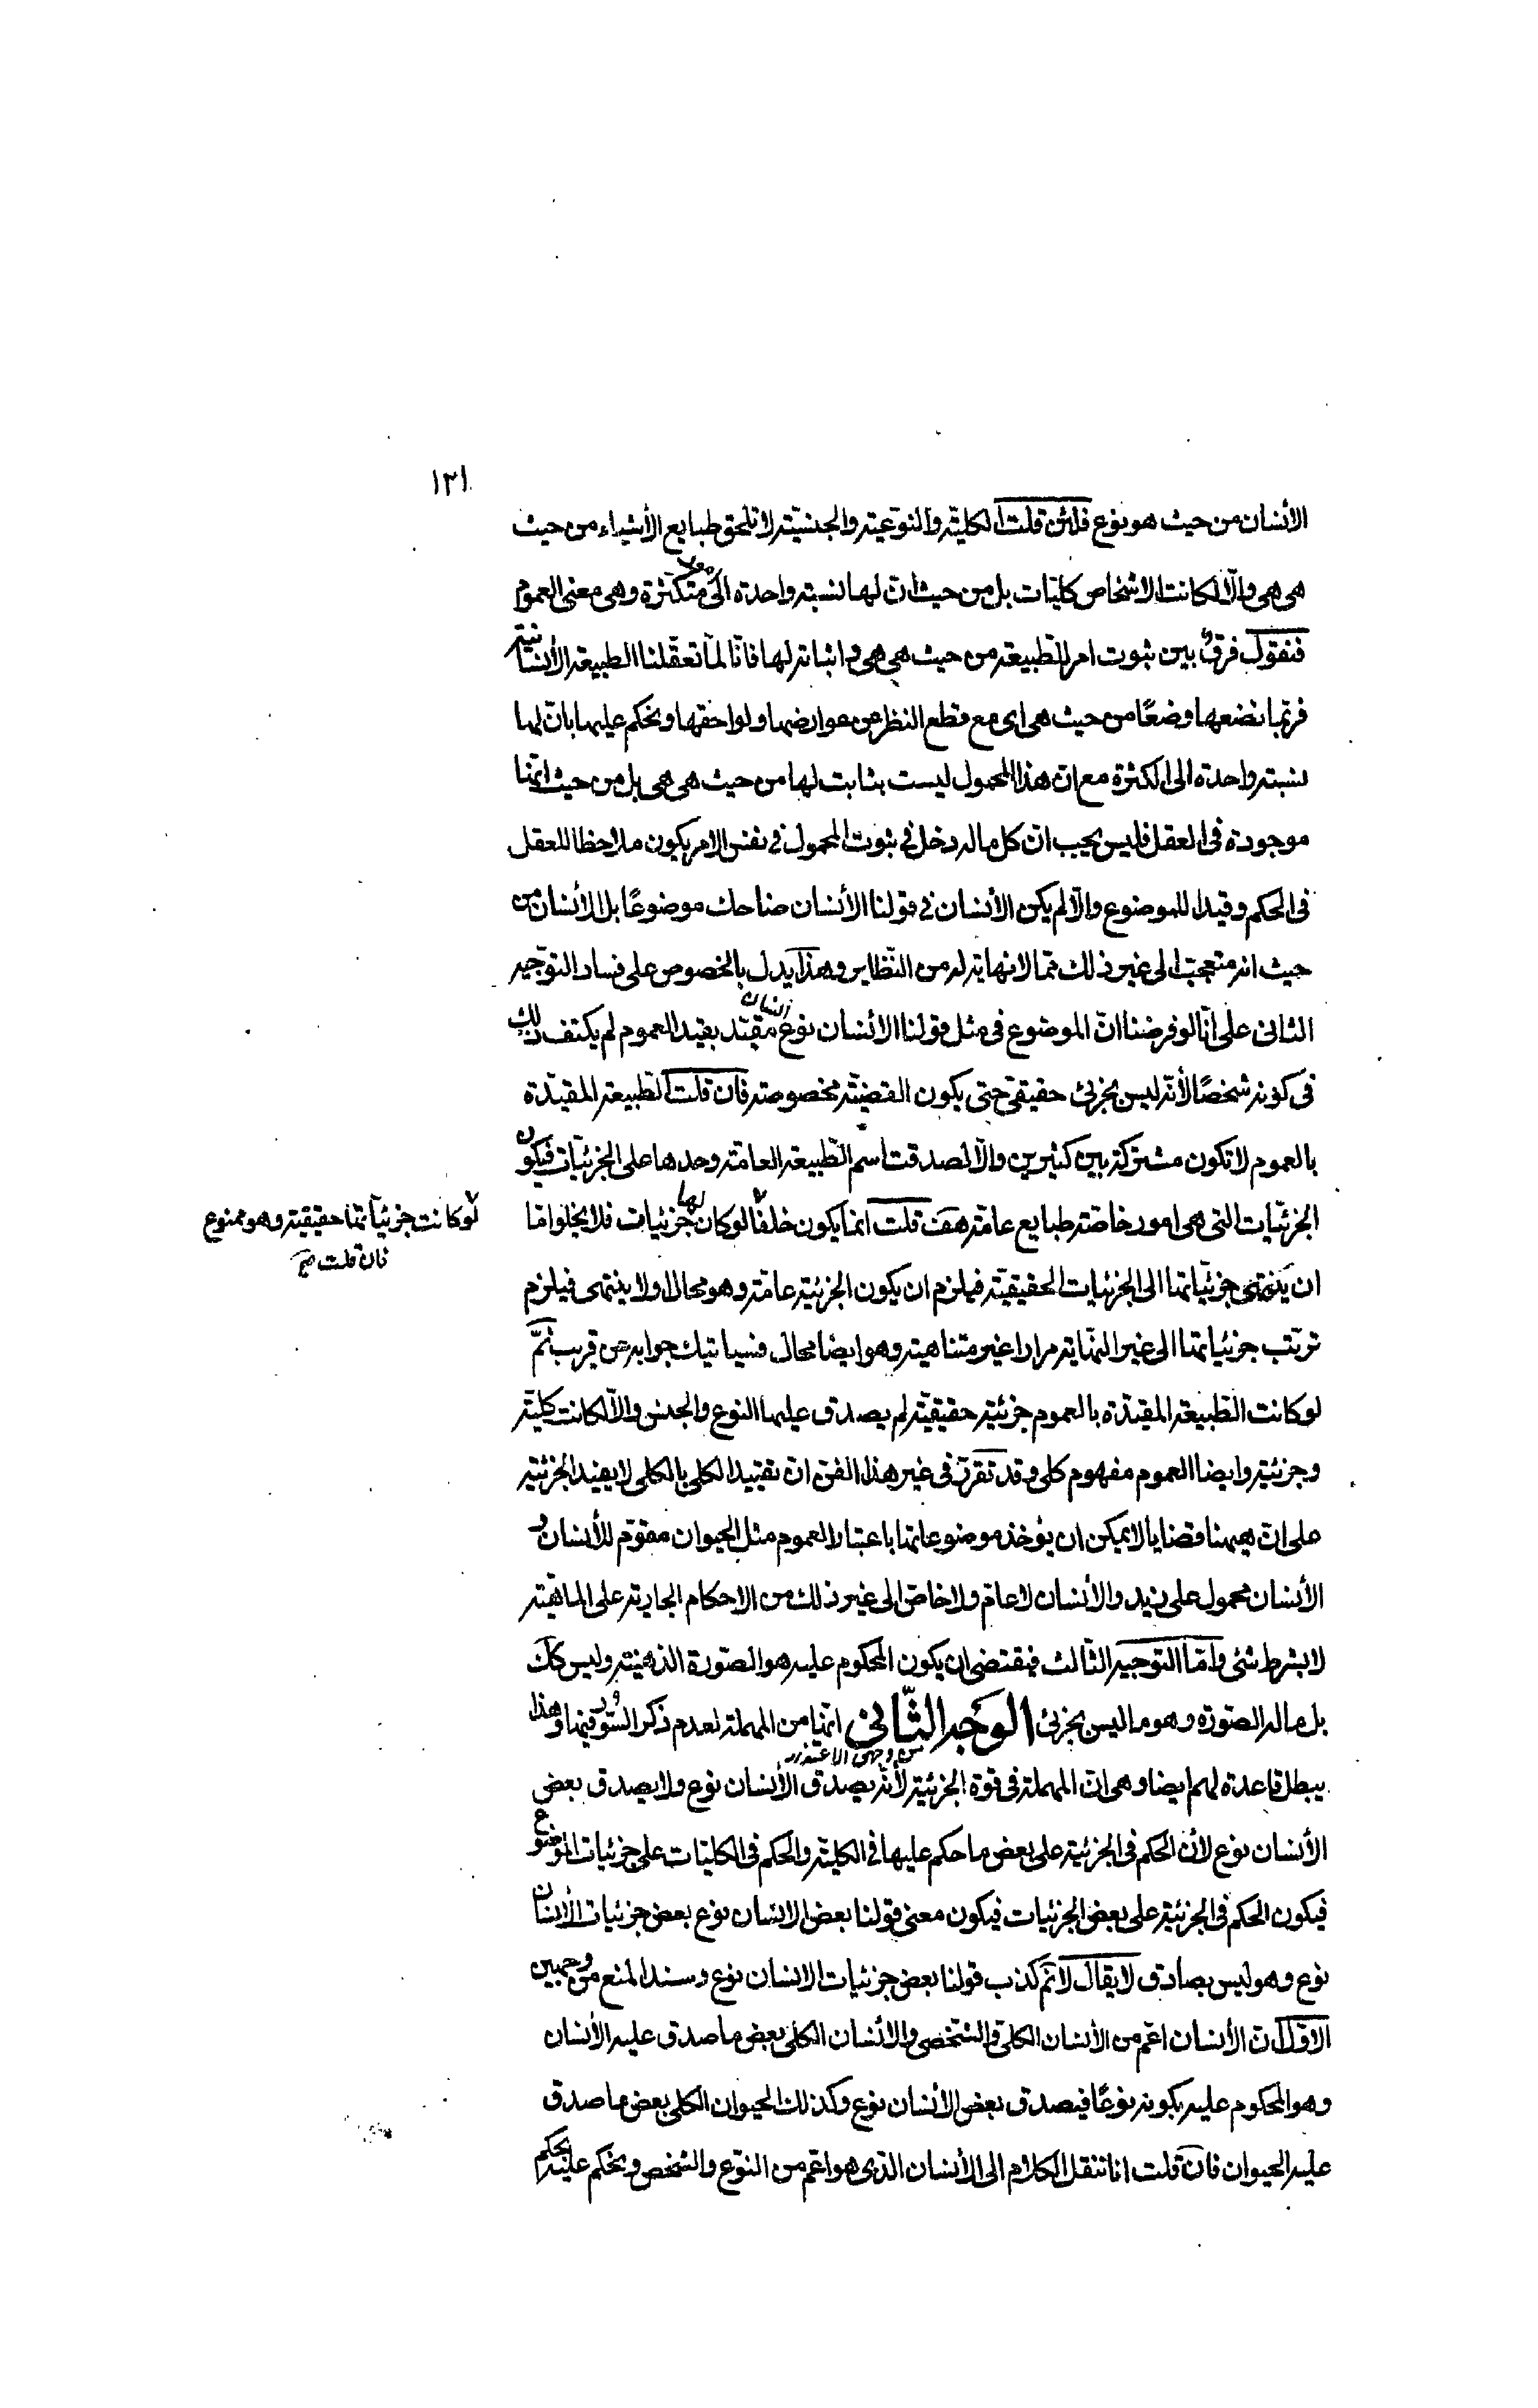 ١٢١
الأنسان من حيث هو نوع فلئن قلت الكلية والنوعية والجنسية لا تلحق طبايع الأشياء من حيث
هى هى والّا لكانت الاشخاص كليّات بل من حيث انّ لها نسبة واحدة الى متكثرة وهى معنى العموم
فنقول فرقٌ بين ثبوت امر للطّبيعة من حيث هى هى و اثباته لها فانّا لمّا تعقّلنا الطبيعة الأنسانية
فربّما نضعها وضعًا من حيث هى اى مع قطع النظر عن عوارضها ولواحقها ونحكم عليها بانّ لها
نسبة واحدة الى الكثرة مع انّ هذا المحمول ليست بثابت لها من حيث هى هى بل من حيث انّها
موجودة فى العقل فليس يجب انّ كل ماله دخل فى ثبوت المحمول فى نفس الامر يكون ملاحظا للعقل
فى الحكم وقيدا للموضوع والّا لم يكن الأنسان فى قولنا الأنسان ضاحك موضوعًا بل الأنسان من
حيث انه متعجّب الى غير ذلك ممّا لا نهاية له من النّظاير وهذا يدل بالخصوص على فساد التوجيه
الثانى على انّا لو فرضنا انّ الموضوع فى مثل قولنا الأنسان نوع انسان مقيّد بقيد العموم لم يكتف ذلك
فى كونه شخصًا لأنّه ليس بجزئى حقيقى حتى يكون القضيّة مخصوصة فان قلت الطّبيعة المقيّدة
بالعموم لا تكون مشتركة بين كثيرين والّا لصدقت اسم الطّبيعة العامّة وحدها على الجزئيّات فيكون
الجزئيّات التى هى امور خاصّة طبايع عامّة هف قلت انما يكون خلفًا لو كان لها جزئيات فلا يخلو امّا
لو كانت جزئيّاتها حقيقية وهو ممنوع
فان قلت صح
ان ينتهى جزئيّاتها الى الجزئيات الحقيقيّة فيلزم ان يكون الجزئية عامّة وهو محال او لا ينتهى فيلزم
ترتّب جزئياتها الى غير النّهاية مرارا غير متناهية وهو ايضا محال فسياتيك جوابه عن قريب ثمّ
لو كانت الطّبيعة المقيّدة بالعموم جزئية حقيقيّة لم يصدق عليها النوع والجنس والّا لكانت كليّة
وجزئية وايضا العموم مفهوم كلى وقد تقرّر فى غير هذا الفن انّ تقييد الكلى بالكلى لا يفيد الجزئية
على انّ هيهنا قضايا لا يمكن ان يؤخذ موضوعاتها باعتبار العموم مثل الحيوان مقوّم للأنسان و
الأنسان محمول على زيد والأنسان لا عام ولا خاص الى غير ذلك من الاحكام الجارية على الماهيّة
لا بشرط شئ وامّا التوجيه الثّالث فيقتضى ان يكون المحكوم عليه هو الصّورة الذهنية وليس كك
بل ماله الصّورة وهو ما ليس بجزئى الوجه الثّانى انّها من المهملة لعدم ذكر السّور فيها وهذا
من وجهى الاعتذار
يبطل قاعدة لهم ايضا وهى انّ المهملة فى قوة الجزئية لأنّه يصدق الأنسان نوع ولا يصدق بعض
الأنسان نوع لأن الحكم فى الجزئية على بعض ما حكم عليها فى الكلية والحكم فى الكليّات على جزئيات الموضوع
فيكون الحكم فى الجزئية على بعض الجزئيات فيكون معنى قولنا بعض الانسان نوع بعض جزئيات الأنسان
نوع وهو ليس بصادق لا يقال لا نم كذب قولنا بعض جزئيات الانسان نوع وسند المنع من وجهين
الاوّل انّ الأنسان اعّم من الأنسان الكلى والشّخصى والأنسان الكلى بعض ما صدق عليه الأنسان
وهو المحكوم عليه بكونه نوعًا فيصدق بعض الأنسان نوع وكذلك الحيوان الكلى بعض ما صدق
عليه الحيوان فان قلت انا ننقل الكلام الى الأنسان الذى هو اعّم من النوع والشخص ونحكم عليه